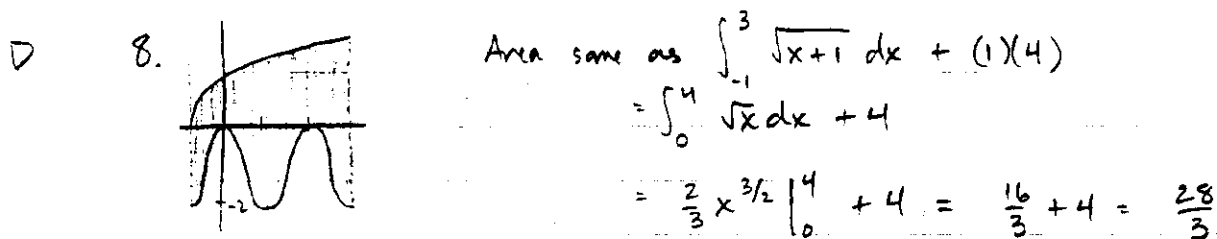 D 8. Area same as ∫_{-1}^{3} √(x+1) dx + (1)(4)
= ∫_{0}^{4} √x dx + 4
-2
= 2/3 x^{3/2} |_{0}^{4} + 4 = 16/3 + 4 = 28/3